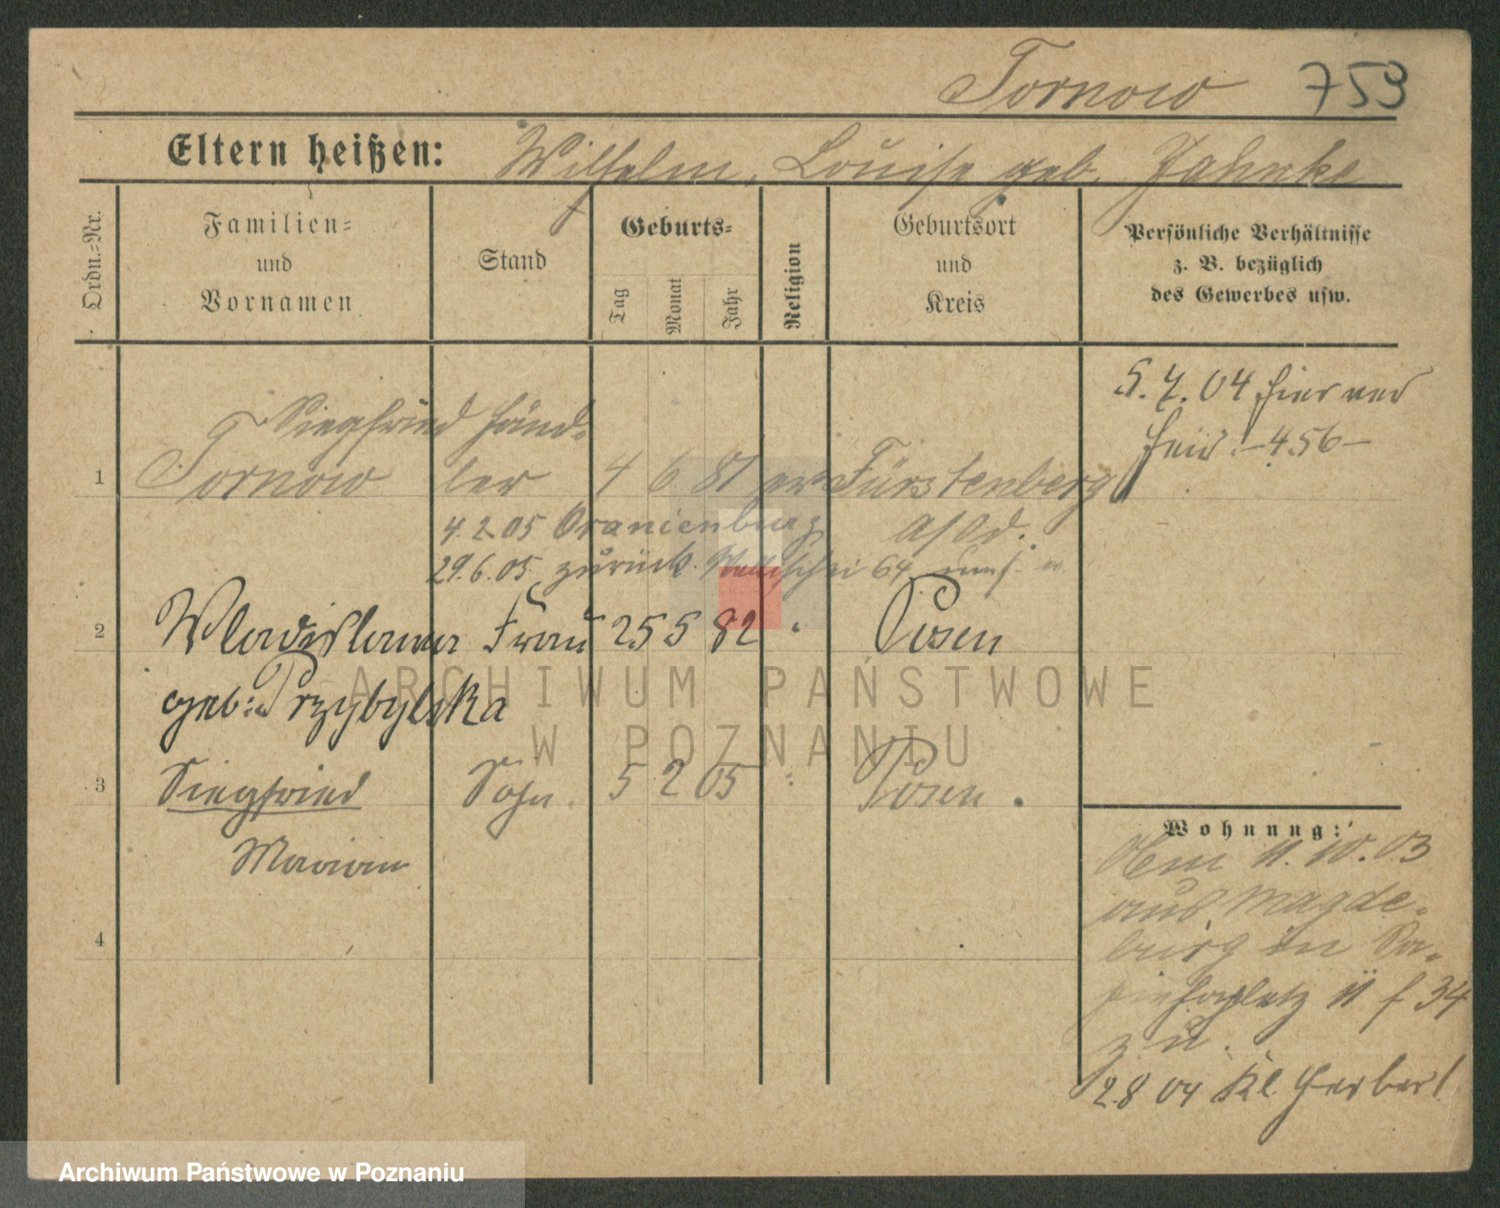 Tornow 753
Eltern heißen: Wilhelm, Louise geb. Jahnke
Ordn.-Nr.
Familien-
und
Vornamen
Stand
Geburts-
Tag
Monat
Jahr
Religion
Geburtsort
und
Kreis
Persönliche Verhältnisse
z. B. bezüglich
des Gewerbes usw.
5. 7. 04 hier ver
heir. -456-
Siegfried Händ-
1 Tornow ler 4 6 81 ev Fürstenberg
4.2.05 Oranienburg a/Od.
29.6.05 zurück. 64
2 Wladislawa Frau 25 5 82 " Posen
geb: Przybylska
3 Siegfried Sohn 5 2 05 " Posen.
Marian
4
Wohnung:
11.10.03
aus Magde-
burg in Sa-
piehaplatz 11 f 34
zu.
2.8 04 Kl. Gerberl
ARCHIWUM PAŃSTWOWE
W POZNANIU
Archiwum Państwowe w Poznaniu